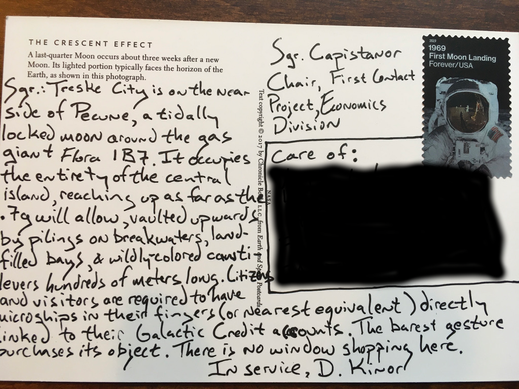 THE CRESCENT EFFECT
A last-quarter Moon occurs about three weeks after a new
Moon. Its lighted portion typically faces the horizon of the
Earth, as shown in this photograph.
Sgr.: Treske City is on the near
side of Pecune, a tidally
locked moon around the gas
giant Flora 1B7. It occupies
the entirety of the central
island, reaching up as far as the
.7g will allow, vaulted upwards
by pilings on breakwaters, land-
filled bays, & wildly-colored canti-
levers hundreds of meters long. Citizens
and visitors are required to have
microships in their fingers (or nearest equivalent) directly
linked to their Galactic Credit accounts. The barest gesture
purchases its object. There is no window shopping here.
In service, D. Kinor
Text copyright © 2017 by Chronicle Books LLC, from Earth and Space Postcards
NASA
Sgr. Capistanor
Chair, First Contact
Project, Economics
Division
Care of:
1969
First Moon Landing
Forever/USA